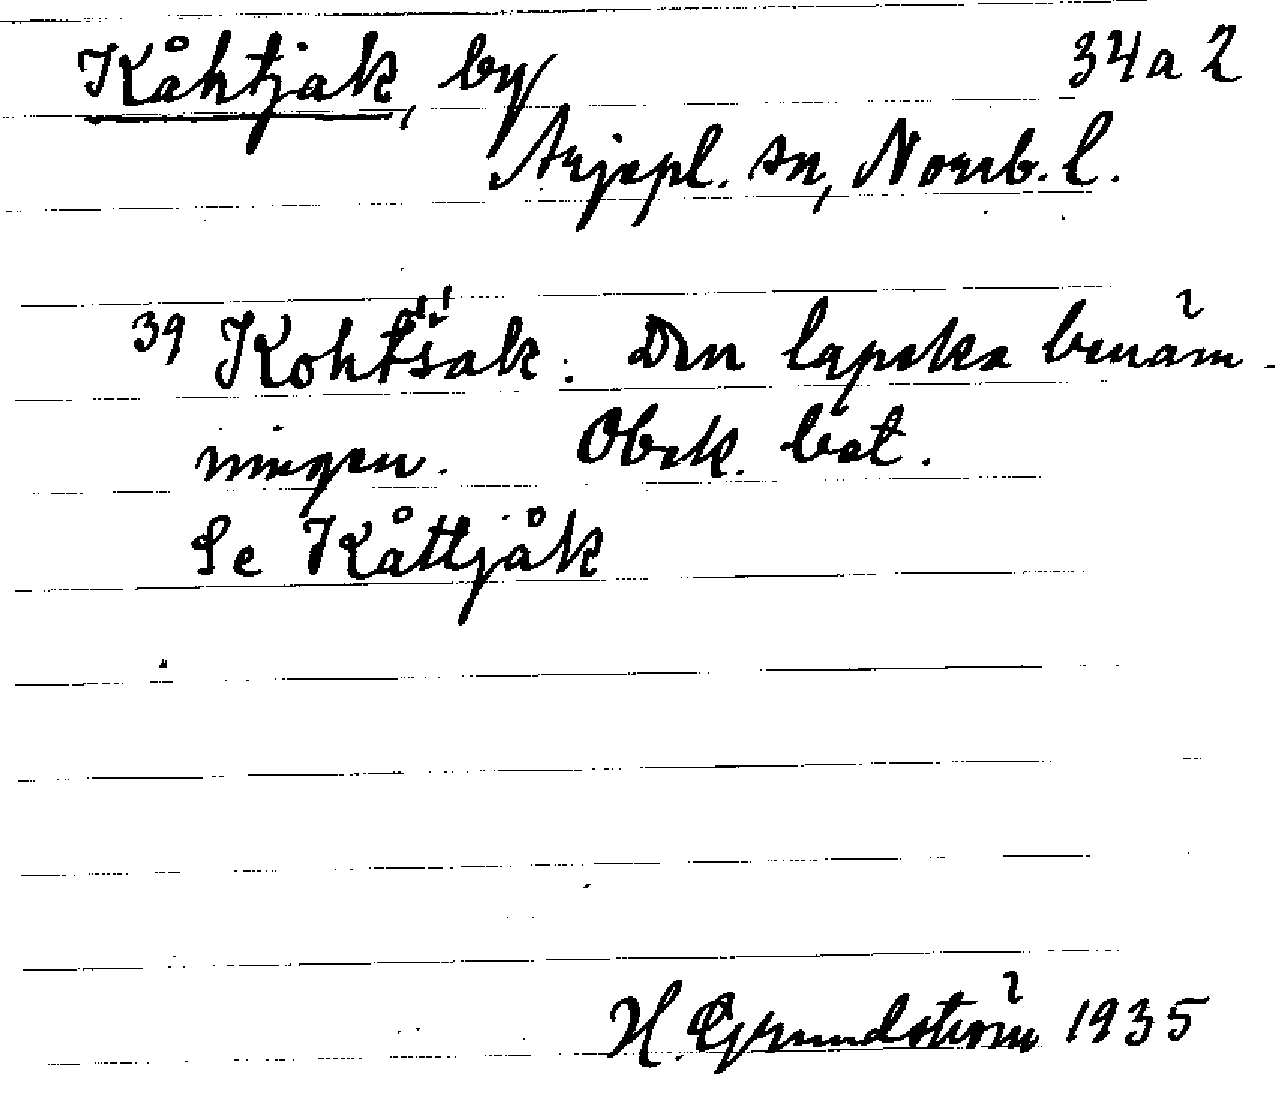 Kåhtjak, by 34a2
Arjepl. sn, Norrb. l.
39 Kohtšak: Den lapska benäm-
ningen. Obek. bet.
Se Kåttjåk
H. Grundström 1935